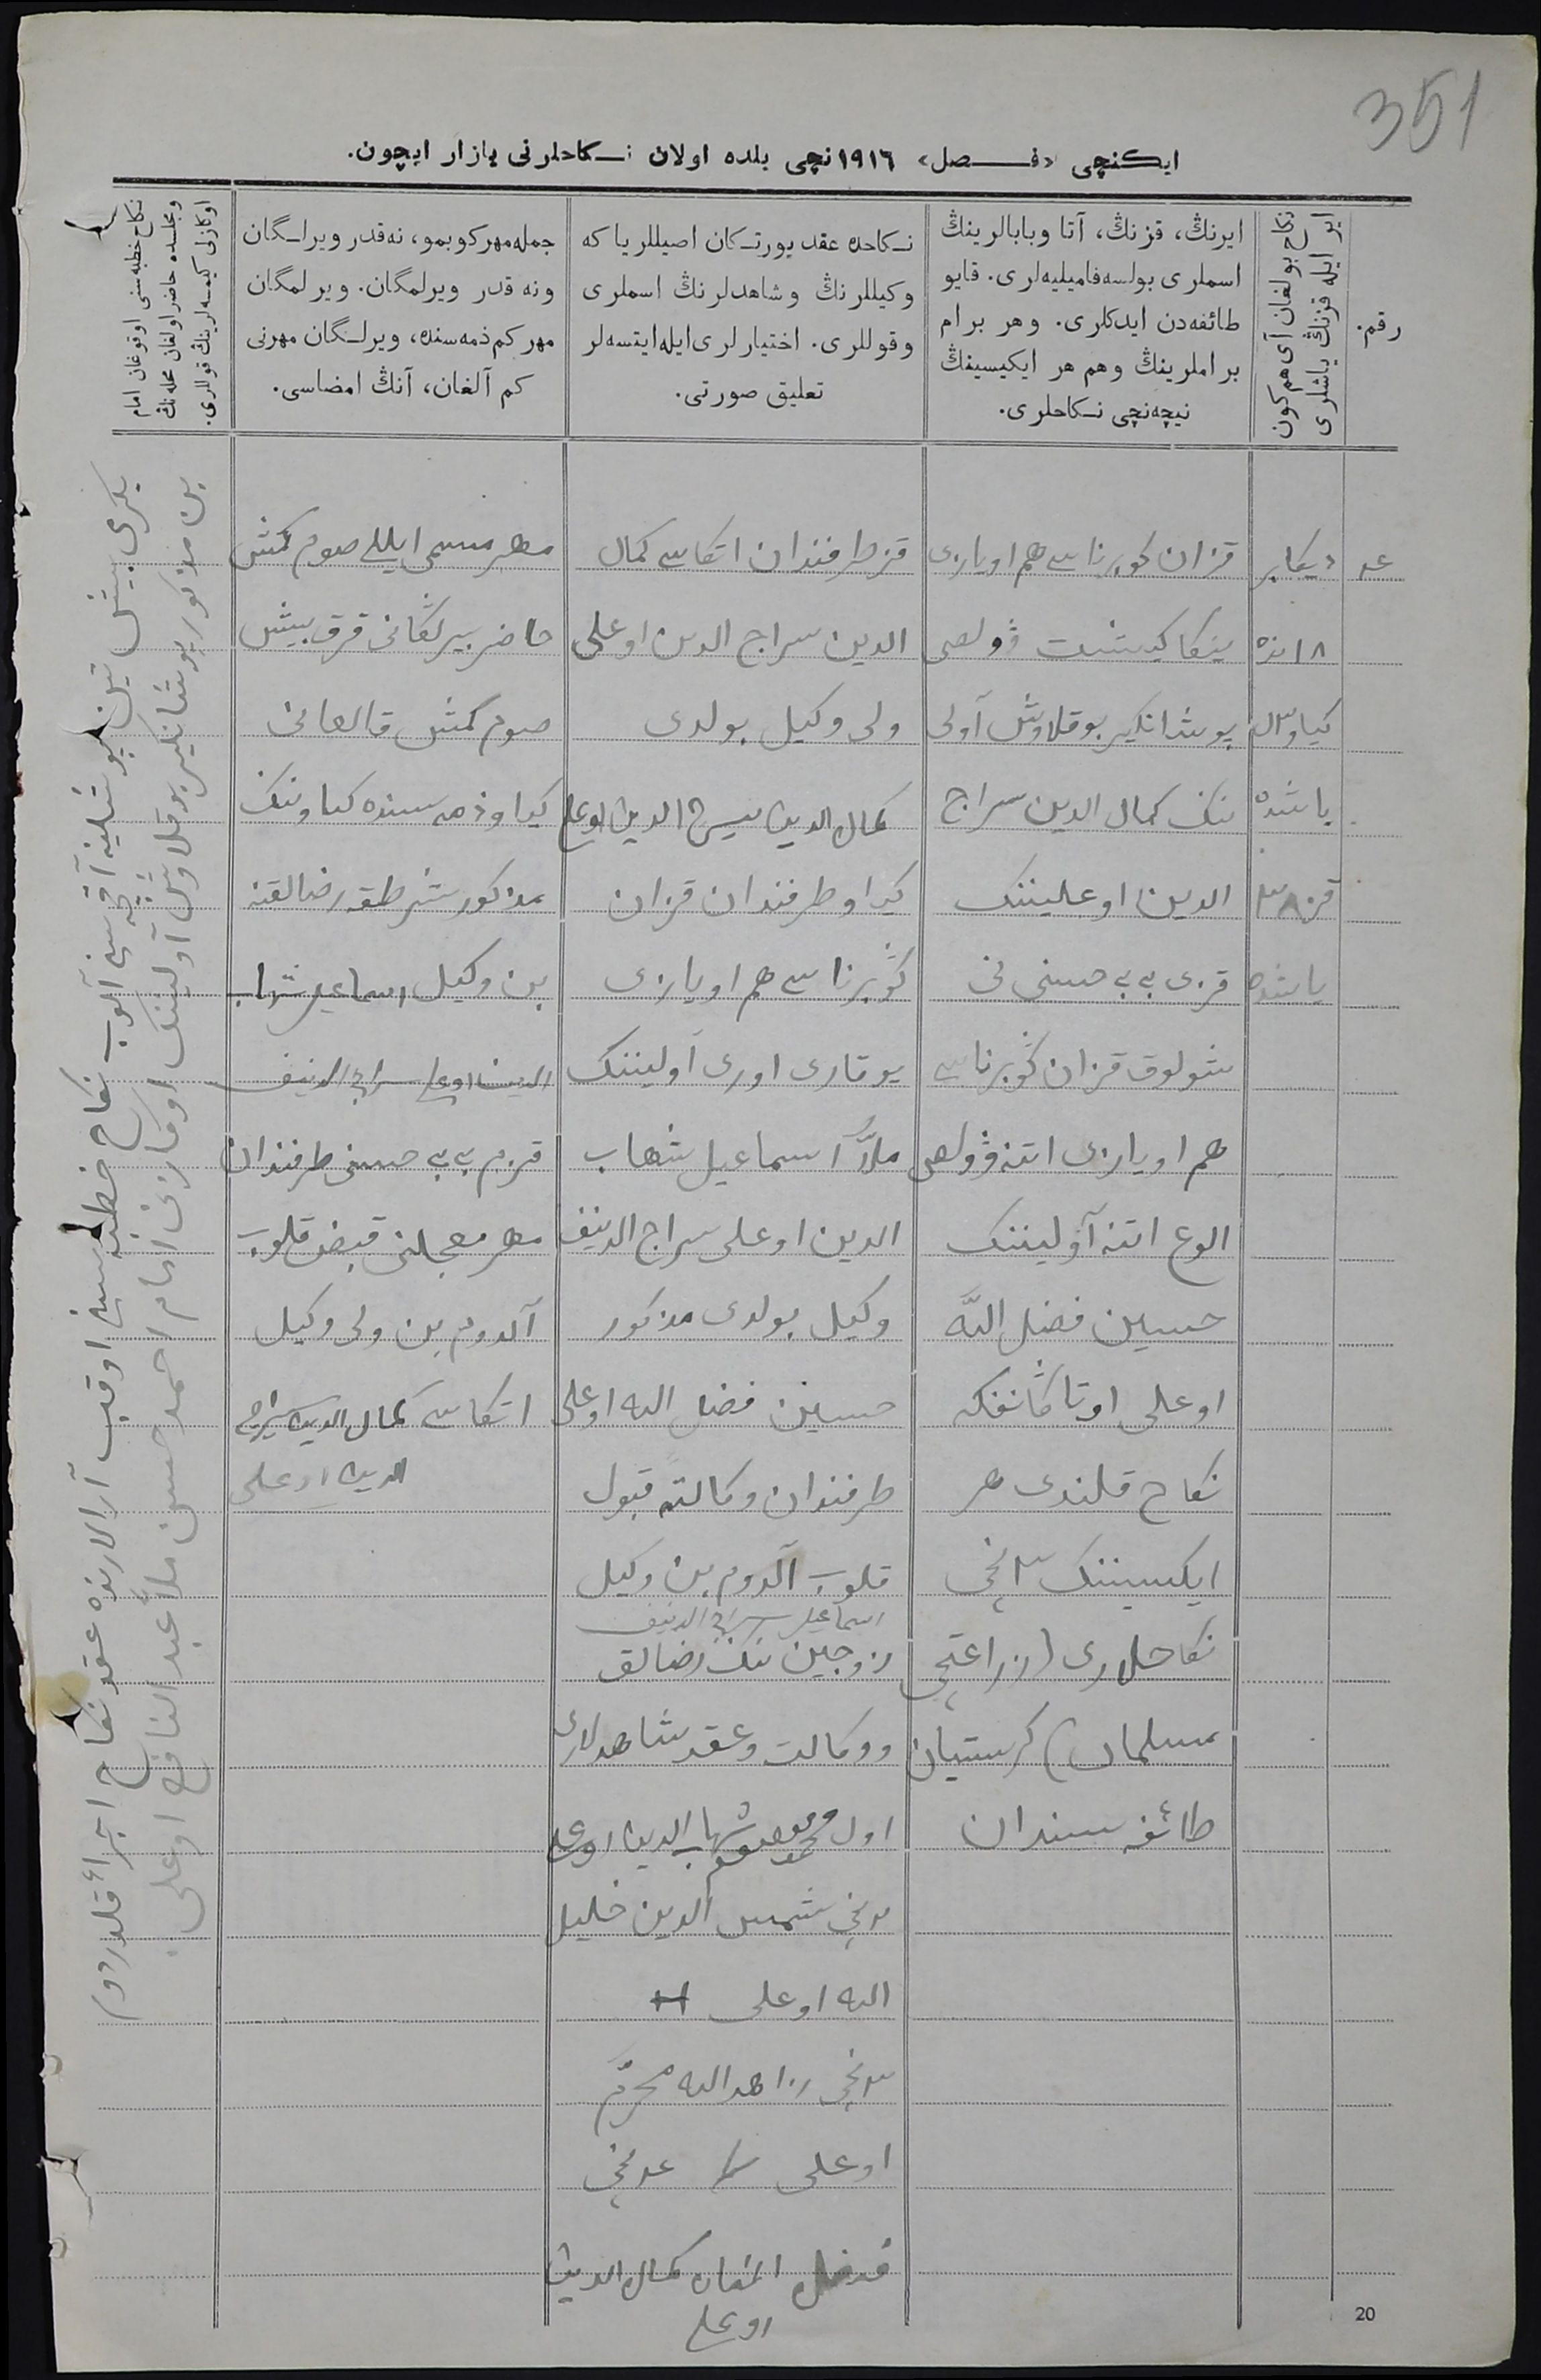 351
ایکنچی «فصل» ١٩١٦ نچی یلده اولان نکاحلرنی یازار ایچون.
رقم.
نکاح بولغان آی هم کون
ایر ایله قزنڭ یاشلری
ایرنڭ، قزنڭ، آتا وبابالرینڭ
اسملری بولسه فامیلیه‌لری. قایو
طائفه‌دن ایدکلری. وهر برام
براملرینڭ وهم هر ایکیسینڭ
نیچه‌نچی نکاحلری.
نکاحده عقد یورتکان اصیللر یا که
وکیللرنڭ وشاهدلرنڭ اسملری
وقوللری. اختیارلری ایله ایتسه‌لر
تعلیق صورتی.
جمله مهر کوبمو، نه‌قدر ویرلگان
ونه قدر ویرلمگان. ویرلمگان
مهر کم ذمه‌سنده، ویرلگان مهرنی
کم آلغان، آنڭ امضاسی.
نکاح خطبه‌سنی اوقوغان امام
ومجلسده حاضر اولغان محله‌نڭ
اوکازلی کیمسه‌لرینڭ قوللری.
دیکابر
١٨ نده
کیاو
یاشده
قز
یاشده
قزان گوبرناسی هم اویازی
ینکا کیشیت ڤولصی
پوشانکیر بوقلاوش آولی
ننک کمال الدین سراج
الدین اوغلیننک
قزی بی بی حسنی نی
شولوق قزان گوبرناسی
هم اویازی اتنه ڤولصی
الوغ اتنه آولیننک
حسین فضل الله
اوغلی اوتاکانغکه
نکاح قلندی هر
ایکیسیننک ٣ نچی
نکاحلاری (زراعتچی
مسلمان) کرستیان
طائفه سندان
قز طرفندان اتکاسی کمال
الدین سراج الدین اوغلی
ولی وکیل بولدی
کمال الدین سراج الدین اوغلی
کیاو طرفندان قزان
گوبرناسی هم اویازی
یوقاری اوری آولیننک
ملّا اسماعیل شهاب
الدین اوغلی سراج الدینف
وکیل بولدی مذکور
حسین فضل الله اوغلی
طرفندان وکالتة قبول
قلوب آلدوم بن وکیل
اسماعیل سراج الدینف
زوجین ننک رضالق
ووکالت وعقد شاهدلاری
اول شهاب الدین اوغلی
٢ نچی شمس الدین خلیل
الله اوغلی
٣ نچی زاهد الله محرّم
اوغلی ٤ نچی
فضل کمال الدین
اوغلی
مهر مسمی ایللی صوم کمش
حاضر بیرلگانی قرق بیش
صوم کمش قالغانی
کیاو ذمه سنده کیاوننک
مذکور شرطقه رضالقنه
بن وکیل اسماعیل شهاب
الدین اوغلی سراج الدینف
قزم بی بی حسنی طرفندان
مهر معجلنی قبض قلوب
آلدوم بن ولی وکیل
اتکاسی کمال الدین سراج
الدین اوغلی
یکرمی بیش تیین پوشلینه آقچه سنی آلوب نکاح خطبه سنی اوقوب آرالارنده عقد نکاح اجراء قلدردوم
بن مذکور پوشانکیر بوقلاوش آولیننک اوکازنی امام احمد حسن ملّا عبد النافع اوغلی.
20